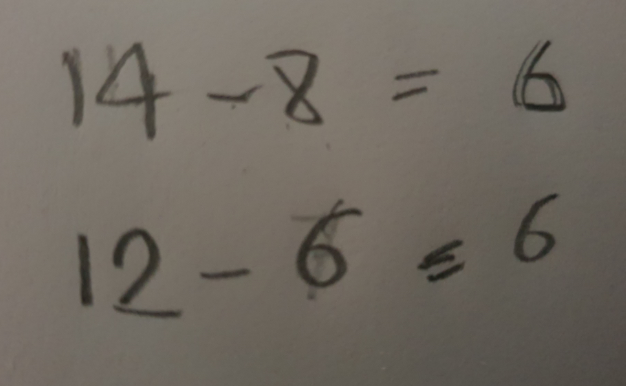 14 - 8 = 6
12 - 6 = 6